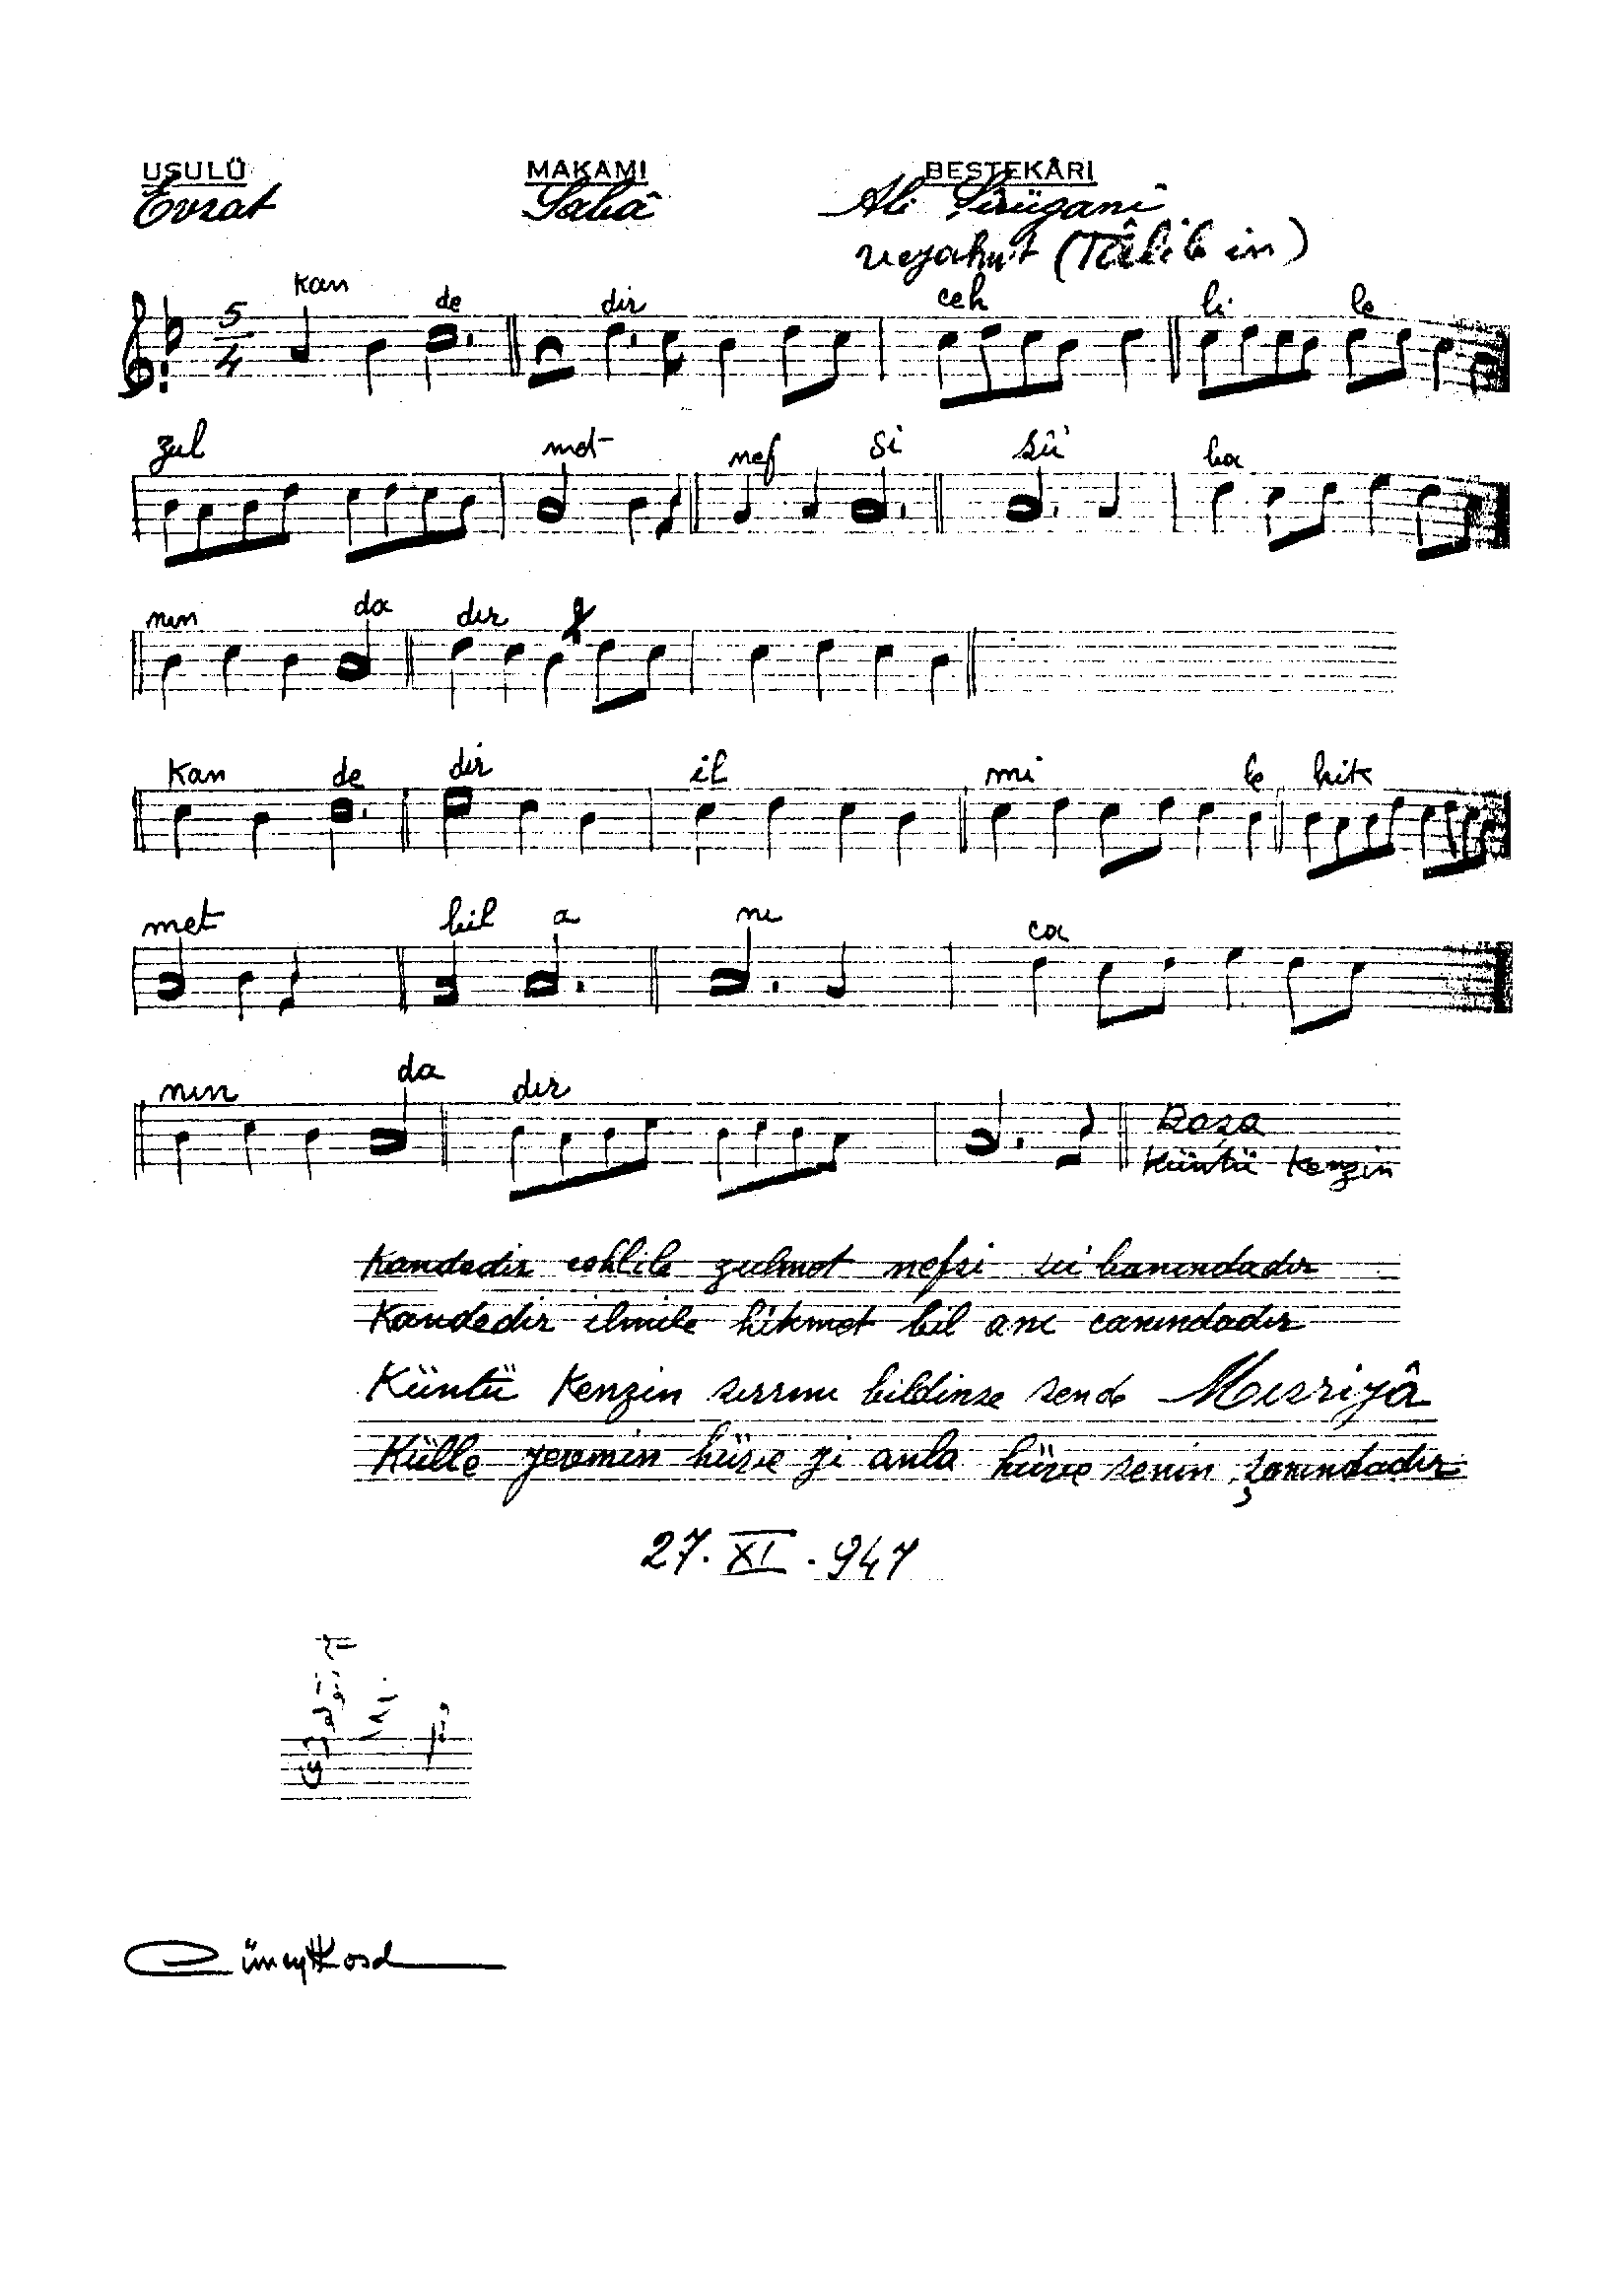 USULÜ MAKAMI BESTEKÂRI
Evsat Sabâ Ali Şirügani
veyahut (Tâlib in)
5/4 kan de dir ceh li le
zul met nef si sü ba
nın da dır
kan de dir il mi le hik
met bil a nı ca
nın da dır Başa
Küntü Kenzin
Kandedir cehlile zulmet nefsi sü'banındadır
Kandedir ilmile hikmet bil anı canındadır
Küntü Kenzin sırrını bildinse sende Mısriyâ
Külle yevmin hüve yi anla hüve senin şanındadır
27. XI . 947